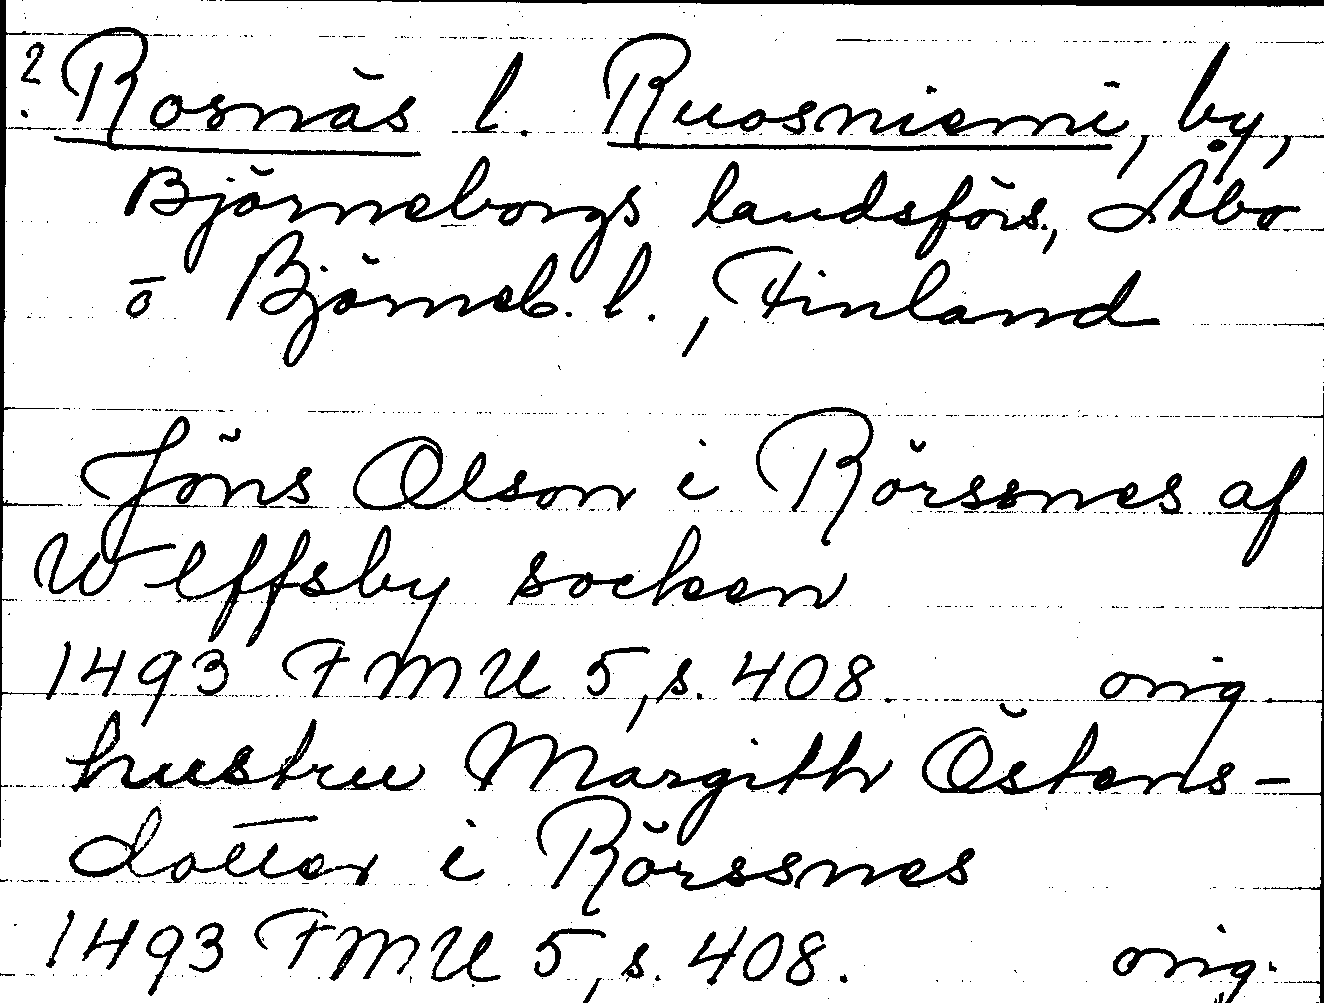 ? Rosnäs l. Ruosniemi, by,
Björneborgs landsförs., Åbo
o Björneb. l., Finland
Jöns Olson i Rörssnes af
Wlffsby socken
1493 FMU 5, s. 408. orig.
hustru Margith Östens-
dotter i Rörssnes
1493 FMU 5, s. 408. orig.